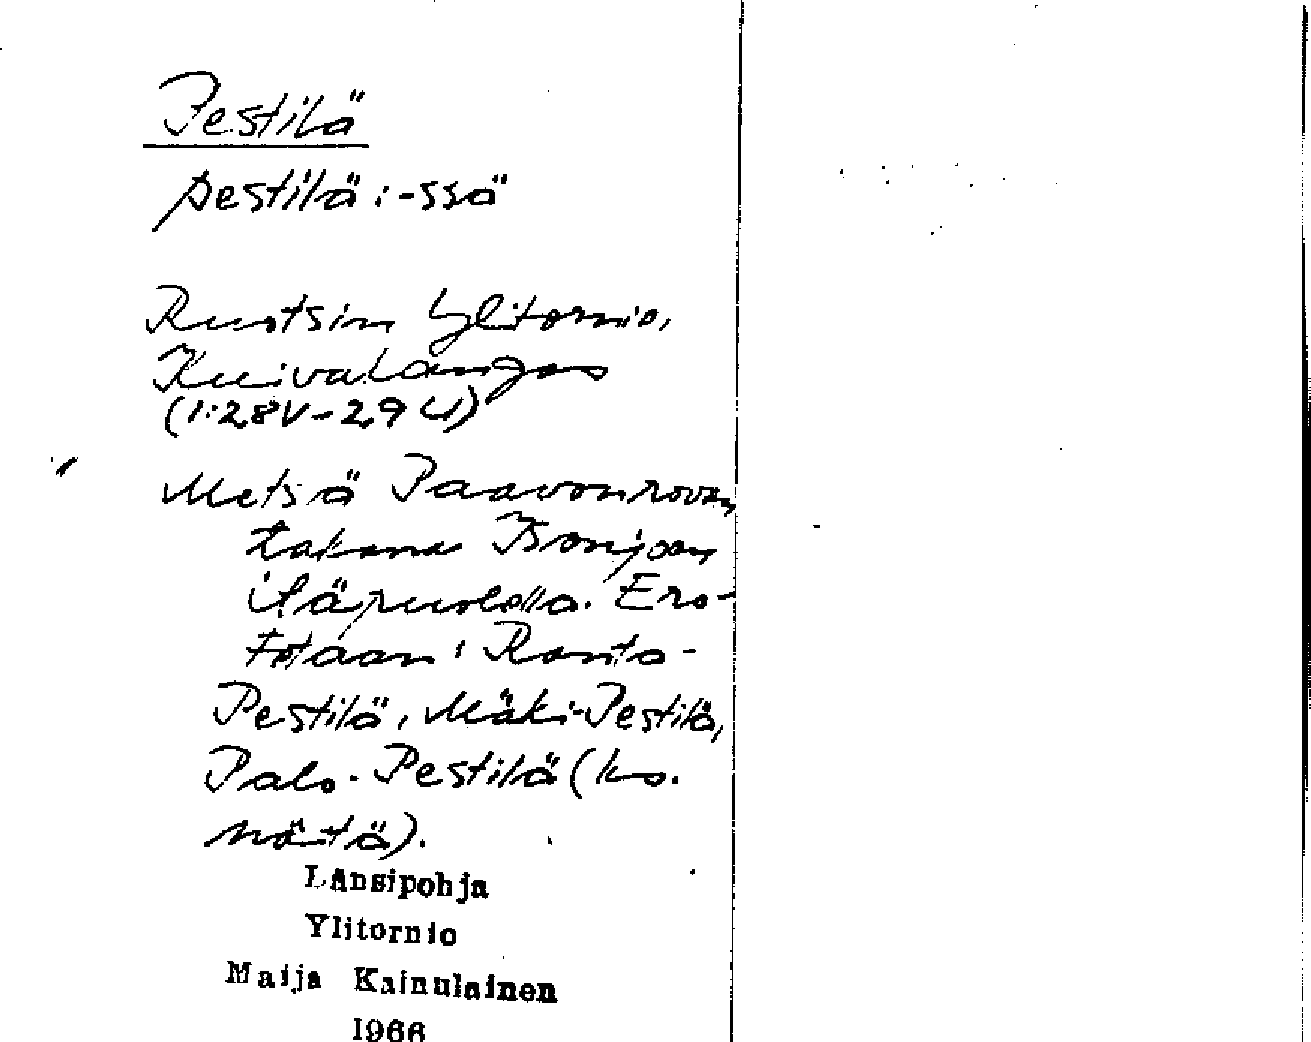 Pestilä
pestilä: -ssä
Ruotsin Ylitornio,
Kuivalangas
(1:28V-29U)
Metsä Paavonrovan
takana Isonjoen
itäpuolella. Ero-
tetaan: Ranta-
Pestilä, Mäki-Pestilä,
Palo-Pestilä (ks.
näitä).
Länsipohja
Ylitornio
Maija Kainulainen
1966